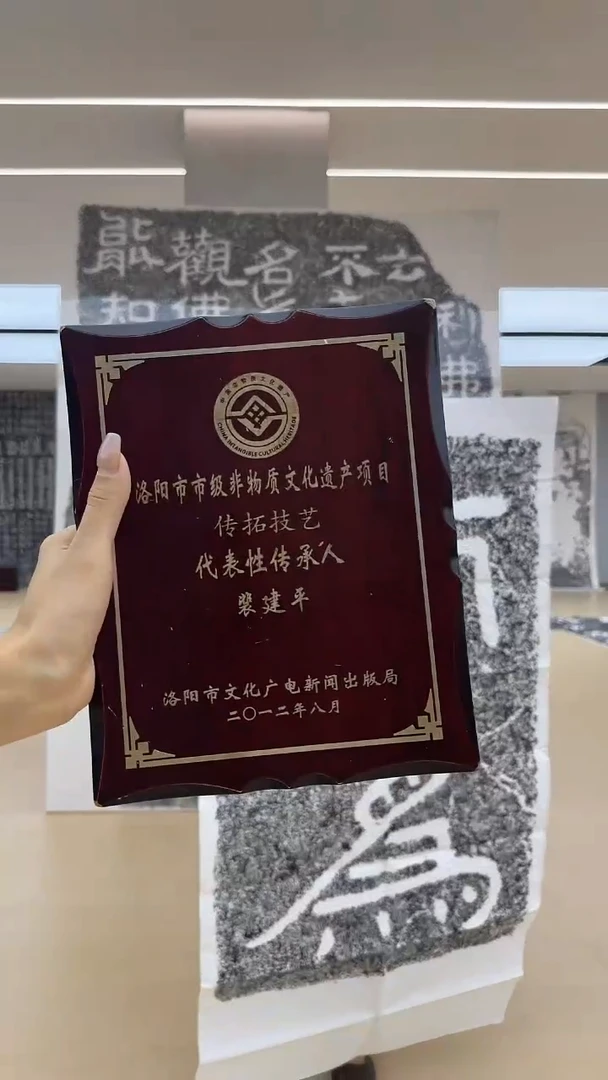 中国非物质文化遗产
CHINA INTANGIBLE CULTURAL HERITAGE
洛阳市市级非物质文化遗产项目
传拓技艺
代表性传承人
裴建平
洛阳市文化广电新闻出版局
二〇一二年八月
能 觀 名 不 云
知 佛 利
佛
為